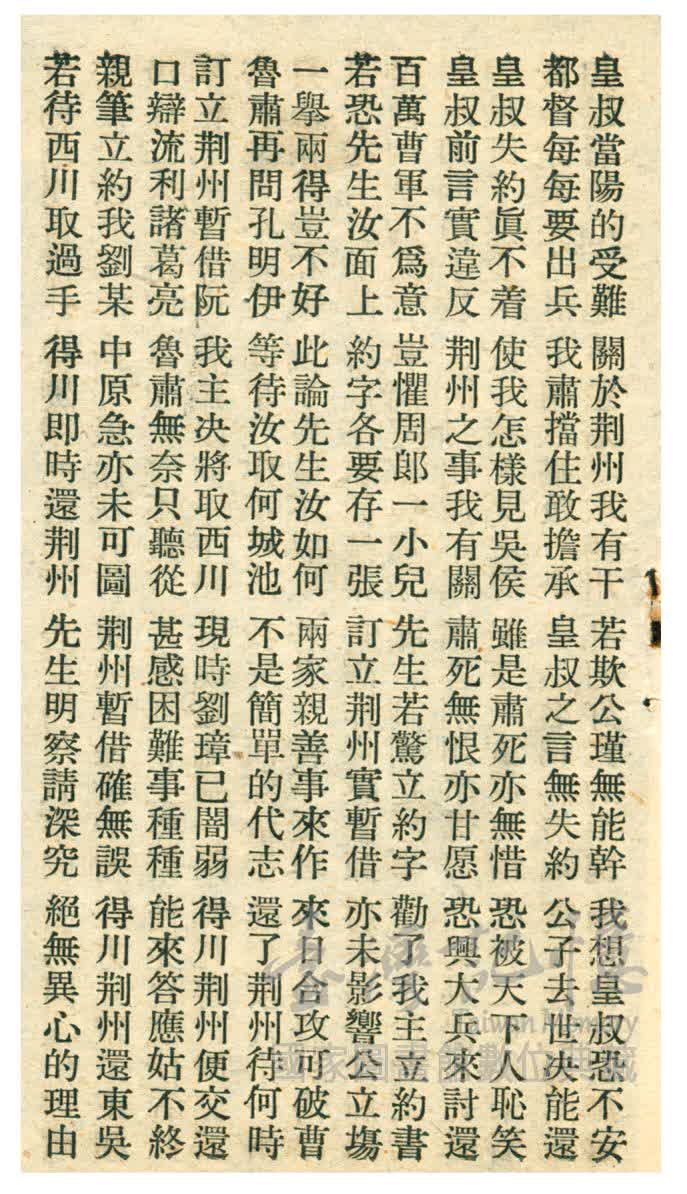 皇叔當陽的受難 關於荆州我有干 若欺公瑾無能幹 我想皇叔恐不安
都督每每要出兵 我肅擋住敢擔承 皇叔之言無失約 公子去世决能還
皇叔失約眞不着 使我怎樣見吳侯 雖是肅死亦無惜 恐被天下人恥笑
皇叔前言實違反 荆州之事我有關 肅死無恨亦甘愿 恐興大兵來討還
百萬曹軍不爲意 豈懼周郎一小兒 先生若驚立約字 勸了我主立約書
若恐先生汝面上 約字各要存一張 訂立荆州實暫借 亦未影響公立塲
一舉兩得豈不好 此論先生汝如何 兩家親善事來作 來日合攻可破曹
魯肅再問孔明伊 等待汝取何城池 不是簡單的代志 還了荆州待何時
訂立荆州暫借阮 我主决將取西川 現時劉璋已闇弱 得川荆州便交還
口辯流利諸葛亮 魯肅無奈只聽從 甚感困難事種種 能來答應姑不終
親筆立約我劉某 中原急亦未可圖 荆州暫借確無誤 得川荆州還東吳
若待西川取過手 得川即時還荆州 先生明察請深究 絕無異心的理由
臺灣記憶
Taiwan Memory
國家圖書館數位典藏